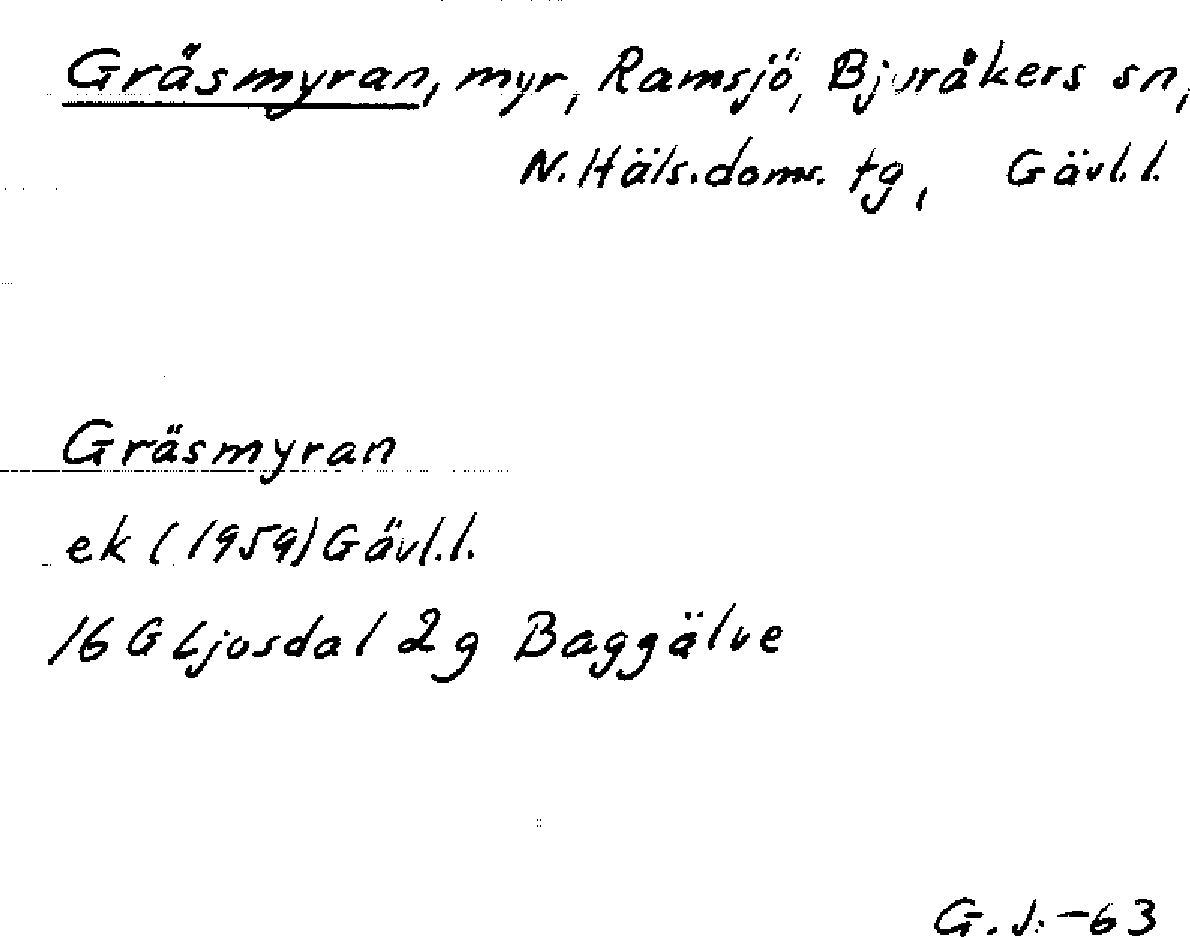 Gräsmyran, myr, Ramsjö, Bjuråkers sn,
N. Häls. doms. tg, Gävl. l.
Gräsmyran
ek (1959) Gävl. l.
16 G Ljusdal 2g Baggälve
G. J. -63